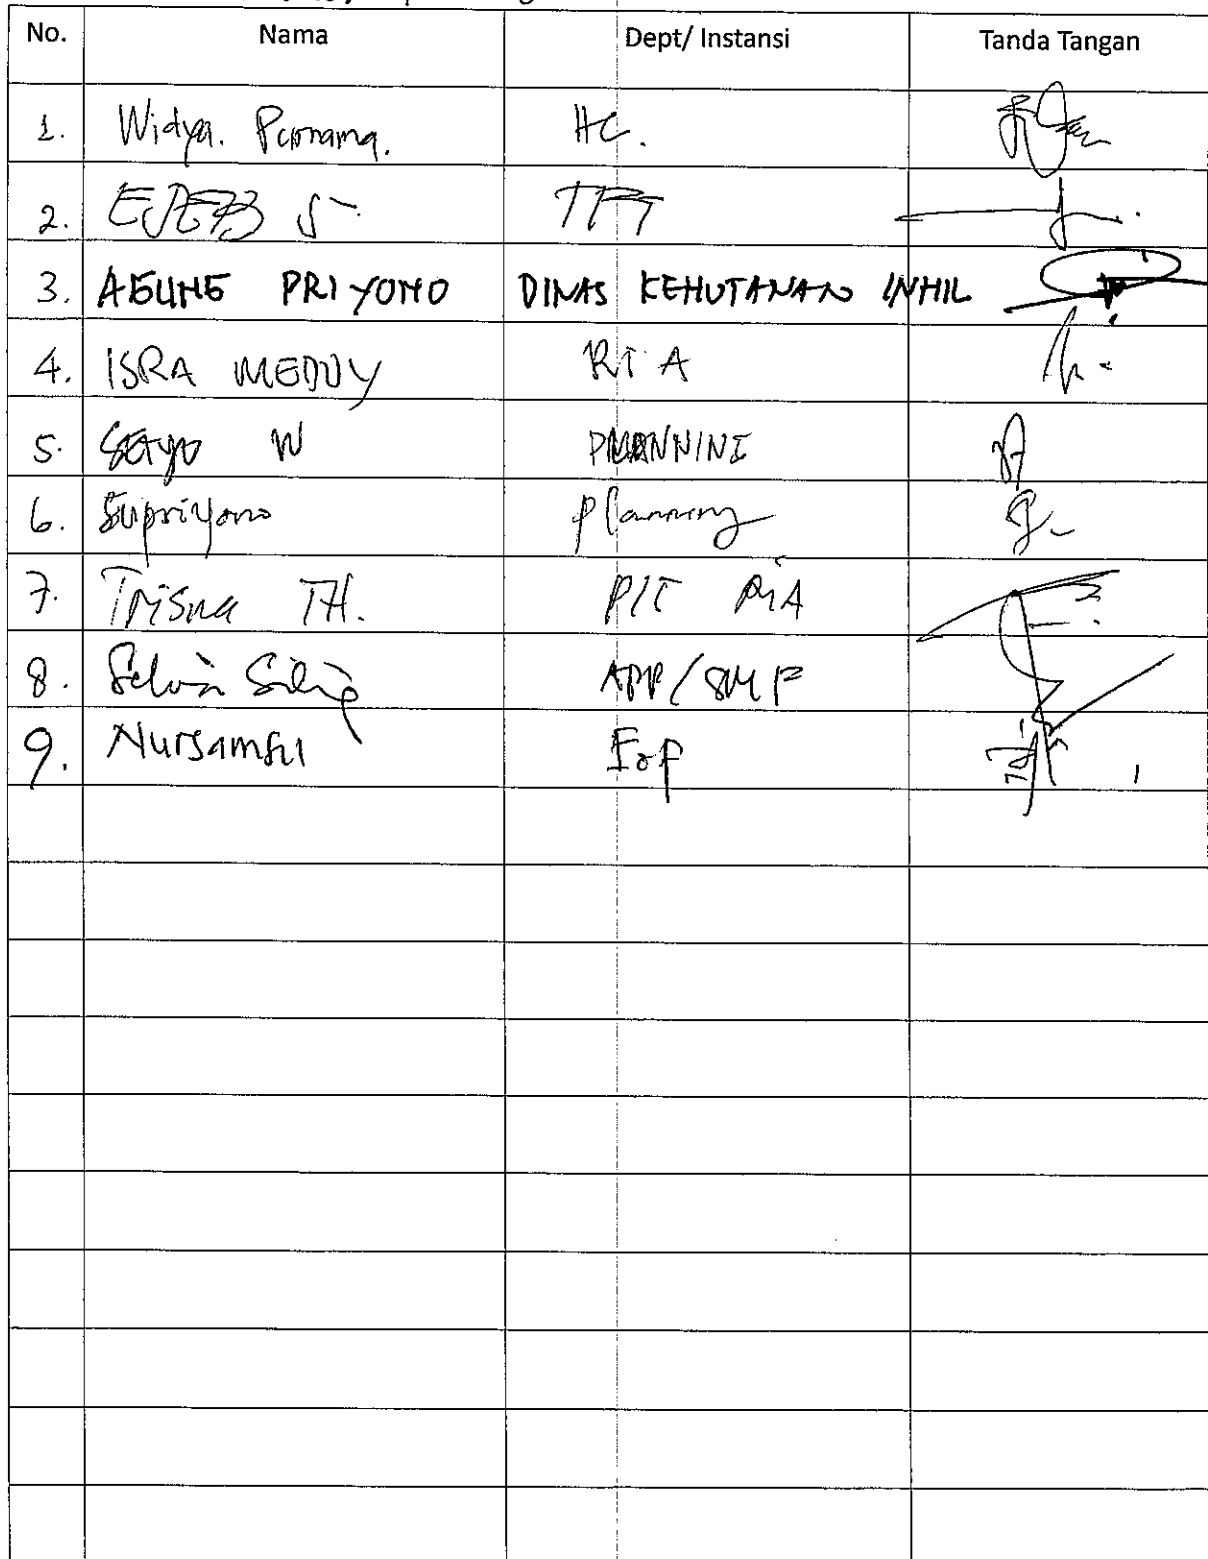 No. Nama Dept/ Instansi Tanda Tangan
1. Widya. Purnama. HC.
2.
3. AGUNG PRIYONO DINAS KEHUTANAN INHIL
4. ISRA MEDDY RTA
5. SETYO W PLANNING
6. Supriyono Planning
7. Trisna TH. PIT
8. APP/SMF
9. Nursamsul